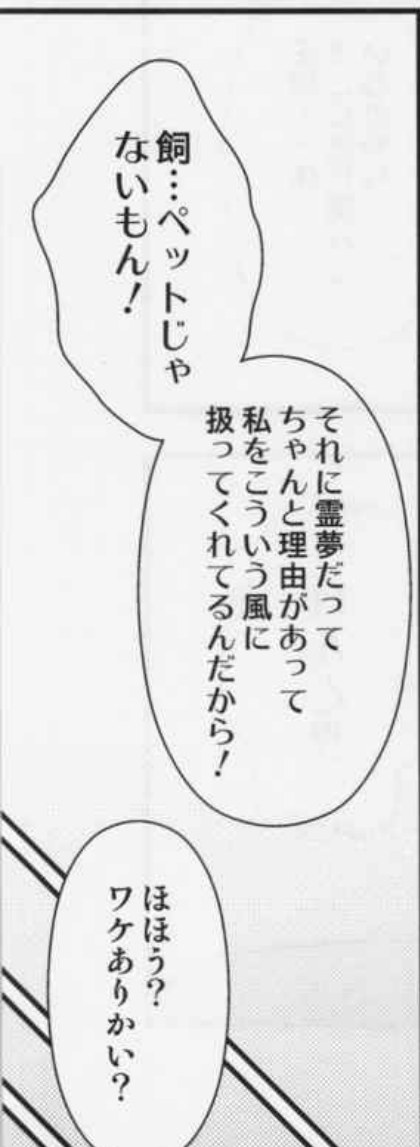 飼…ペットじゃ
ないもん！
それに霊夢だって
ちゃんと理由があって
私をこういう風に
扱ってくれてるんだから！
ほほう？
ワケありかい？